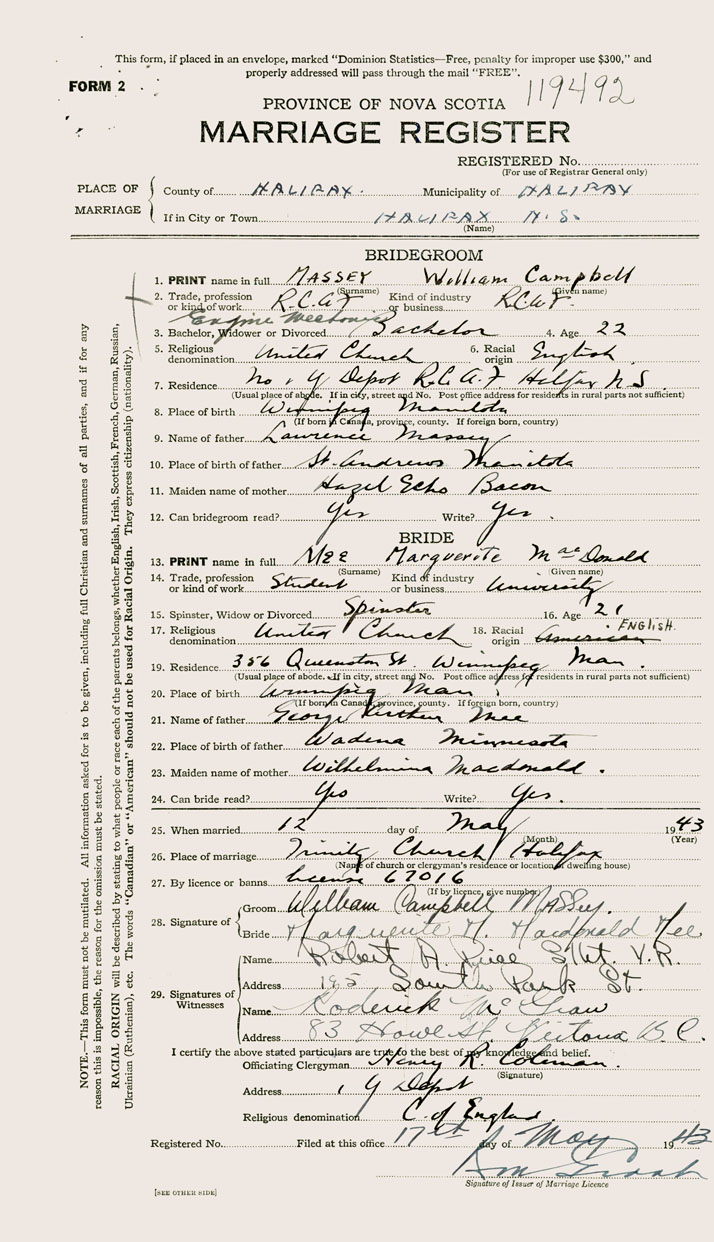 This form, if placed in an envelope, marked "Dominion Statistics—Free, penalty for improper use $300," and
properly addressed will pass through the mail "FREE".
FORM 2
119492
PROVINCE OF NOVA SCOTIA
MARRIAGE REGISTER
REGISTERED No.
(For use of Registrar General only)
PLACE OF MARRIAGE
County of HALIFAX. Municipality of HALIFAX
If in City or Town HALIFAX N.S.
(Name)
BRIDEGROOM
1. PRINT name in full MASSEY William Campbell
(Surname) (Given name)
2. Trade, profession or kind of work R.C.A.F Kind of industry or business R.C.A.F.
Engine Mechanic
3. Bachelor, Widower or Divorced Bachelor 4. Age 22
5. Religious denomination United Church 6. Racial origin English
7. Residence No. 1 Y Depot R.C.A.F Halifax N.S.
(Usual place of abode. If in city, street and No. Post office address for residents in rural parts not sufficient)
8. Place of birth Winnipeg Manitoba
(If born in Canada, province, county. If foreign born, country)
9. Name of father Lawrence Massey
10. Place of birth of father St. Andrews Manitoba
11. Maiden name of mother Hazel Echo Bacon
12. Can bridegroom read? Yes Write? Yes.
BRIDE
13. PRINT name in full MEE Marguerite MacDonald
(Surname) (Given name)
14. Trade, profession or kind of work Student Kind of industry or business University
15. Spinster, Widow or Divorced Spinster 16. Age 21
17. Religious denomination United Church 18. Racial origin American ENGLISH.
19. Residence 356 Queenston St. Winnipeg Man.
(Usual place of abode. If in city, street and No. Post office address for residents in rural parts not sufficient)
20. Place of birth Winnipeg Man.
(If born in Canada, province, county. If foreign born, country)
21. Name of father George Arthur Mee
22. Place of birth of father Wadena Minnesota
23. Maiden name of mother Wilhelmina Macdonald.
24. Can bride read? Yes Write? Yes.
25. When married 12 day of May 1943
(Month) (Year)
26. Place of marriage Trinity Church Halifax
(Name of church or clergyman's residence or location of dwelling house)
27. By licence or banns license 67016
(If by licence, give number)
28. Signature of
Groom William Campbell Massey.
Bride Marguerite M. Macdonald Mee
29. Signatures of Witnesses
Name Robert A. S/Lt. V.R.
Address 195 South Park St.
Name Roderick McGraw
Address 83 Howe St. Victoria B.C.
I certify the above stated particulars are true to the best of my knowledge and belief.
Officiating Clergyman Henry R. Coleman.
(Signature)
Address 1 Y Depot
Religious denomination C. of England.
Registered No. Filed at this office 17th day of May 1943
Signature of Issuer of Marriage Licence
[SEE OTHER SIDE]
NOTE.—This form must not be mutilated. All information asked for is to be given, including full Christian and surnames of all parties, and if for any
reason this is impossible, the reason for the omission must be stated.
RACIAL ORIGIN will be described by stating to what people or race each of the parents belongs, whether English, Irish, Scottish, French, German, Russian,
Ukrainian (Ruthenian), etc. The words "Canadian" or "American" should not be used for Racial Origin. They express citizenship (nationality).